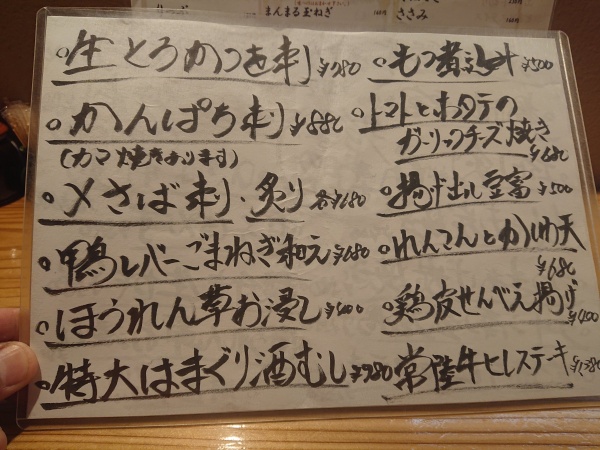 まんまる玉ねぎ
ささみ
生とろかつを刺 ¥780
かんぱち刺 ¥880
(カマ焼きあります)
〆さば刺・炙り 各¥680
鴨レバーごまねぎ和え ¥680
ほうれん草お浸し ¥400
特大はまぐり酒むし ¥980
もつ煮込汁 ¥500
トマトとホタテの
ガーリックチーズ焼き
¥680
揚げ出し豆富 ¥500
れんこんとかしわ天
¥680
鶏皮せんべえ揚げ
¥400
常陸牛ヒレステーキ